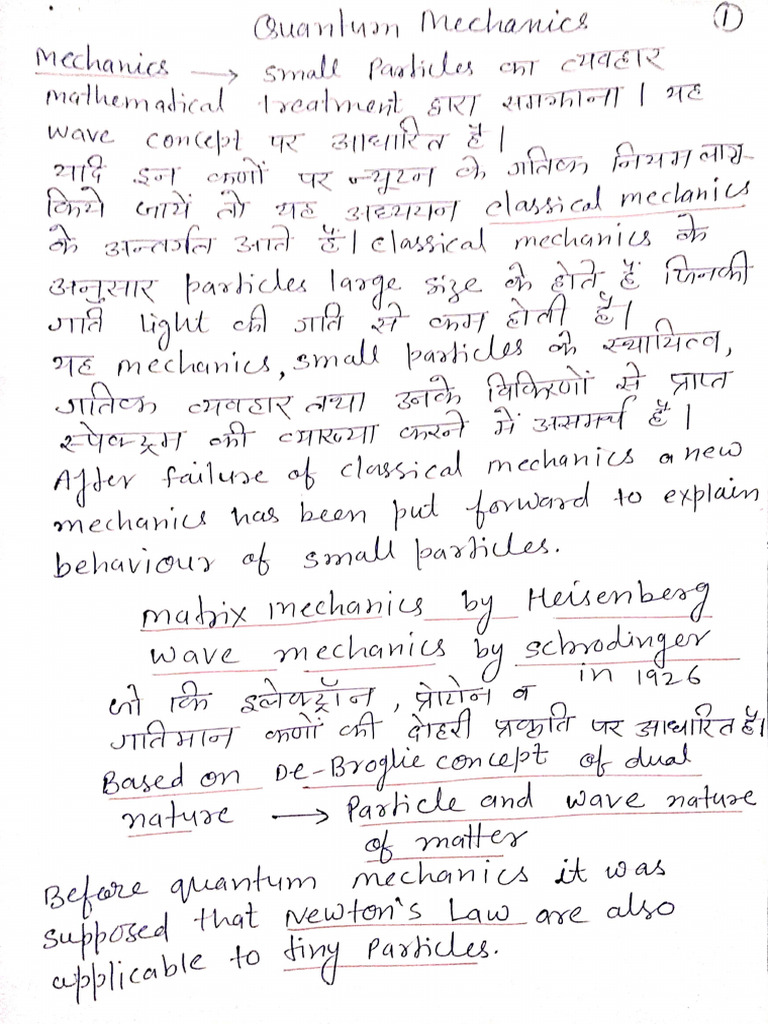 Quantum Mechanics ①
Mechanics → Small Particles का व्यवहार
mathematical treatment द्वारा समझाना। यह
wave concept पर आधारित है।
यदि इन कणों पर न्यूटन के गतिक नियम लागू
किये जायें तो यह अध्ययन classical meclanics
के अन्तर्गत आते हैं। classical mechanics के
अनुसार particles large size के होते हैं जिनकी
गति light की गति से कम होती है।
यह mechanics, small particles के स्थायित्व,
गतिक व्यवहार तथा उनके विकिरणों से प्राप्त
स्पेक्ट्रम की व्याख्या करने में असमर्थ है।
After failure of classical mechanics a new
mechanics has been put forward to explain
behaviour of small particles.
matrix mechanics by Heisenberg
wave mechanics by schrodinger
in 1926
जो कि इलेक्ट्रॉन, प्रोटोन व
गतिमान कणों की दोहरी प्रकृति पर आधारित है।
Based on De-Broglie concept of dual
nature → Particle and wave nature
of matter
Before quantum mechanics it was
supposed that Newton's Law are also
applicable to tiny Particles.